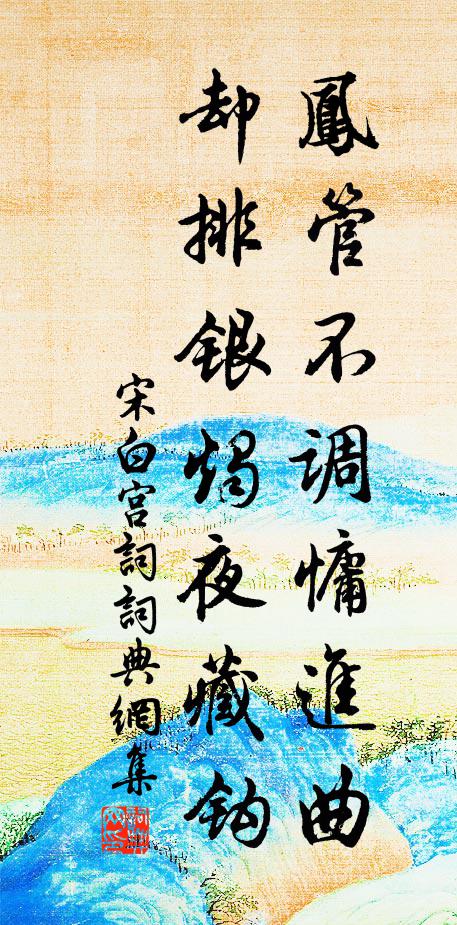 鳳管不調慵進曲
却排銀燭夜藏鈎
宋白宮詞詞典網集